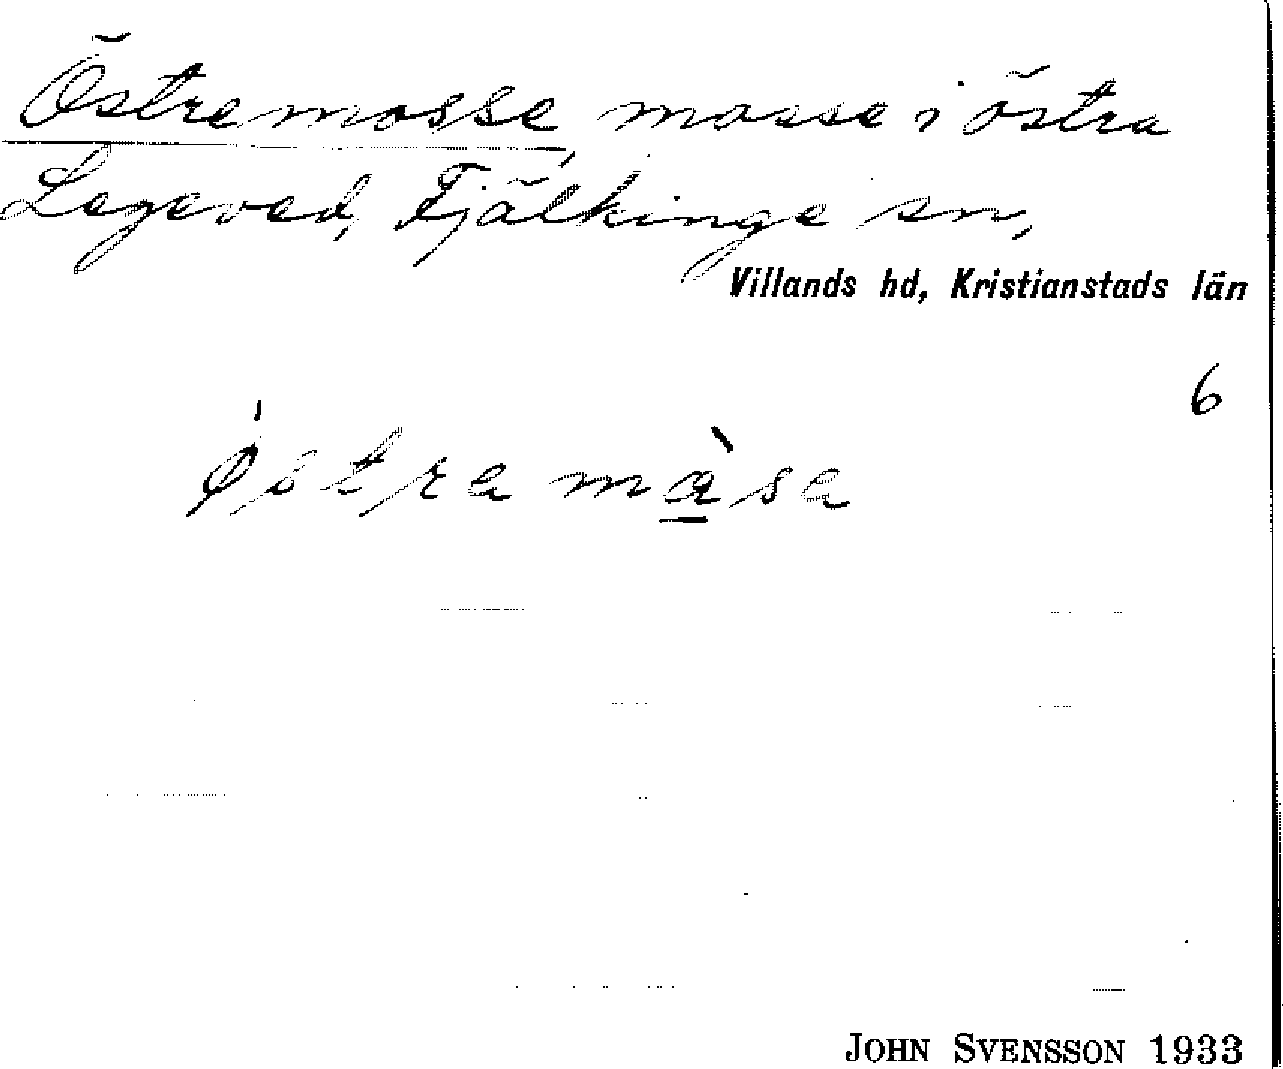 Östremosse, mosse i östra
Legeved, Fjälkinge sn,
Villands hd, Kristianstads län
6
JOHN SVENSSON 1933